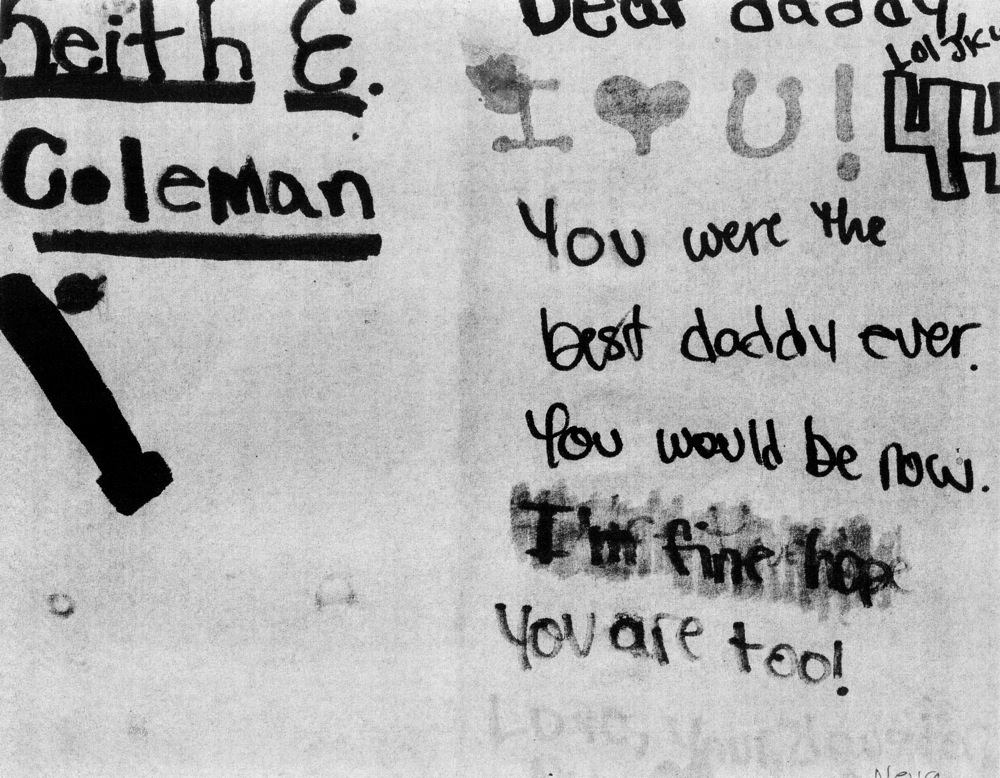 Keith E.
Coleman
Dear daddy,
Lol JK
I ♥ U!
You were the
best daddy ever.
You would be now.
I'm fine hope
you are too!
Love, your